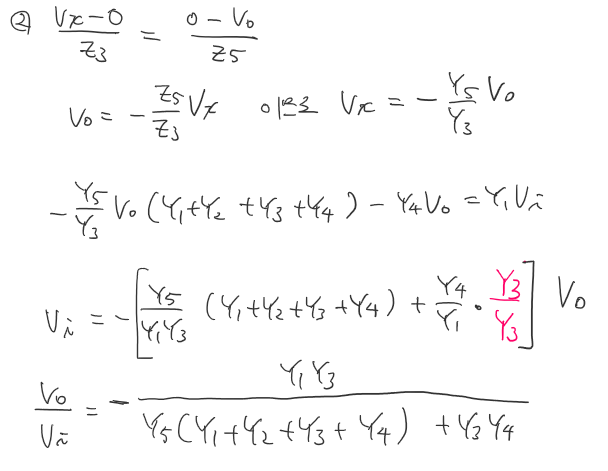 ② (Vx-0)/Z3 = (0-Vo)/Z5
Vo = - (Z5/Z3) Vx 이므로 Vx = - (Y5/Y3) Vo
- (Y5/Y3) Vo (Y1+Y2+Y3+Y4) - Y4Vo = Y1Vi
Vi = - [ (Y5/(Y1Y3)) (Y1+Y2+Y3+Y4) + (Y4/Y1) · (Y3/Y3) ] Vo
Vo/Vi = - (Y1Y3)/(Y5(Y1+Y2+Y3+Y4) + Y3Y4)